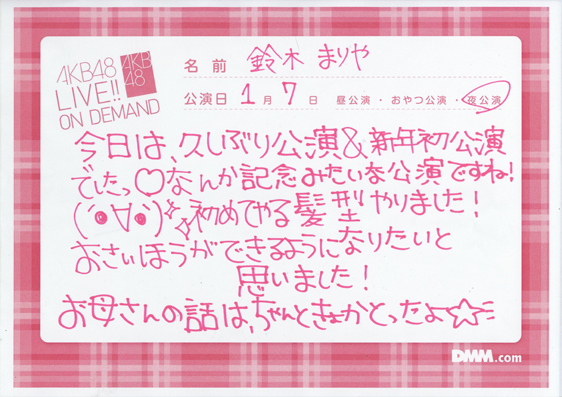 AKB48
LIVE!!
ON DEMAND
AKB
48
名前 鈴木 まりや
公演日 1月7日 昼公演・おやつ公演・夜公演
今日は、久しぶり公演&新年初公演
でしたっ♡なんか記念みたいな公演ですね!
(´•∀•`)☆初めてやる髪型やりました!
おさいほうができるようになりたいと
思いました!
お母さんの話は、ちゃんときょかとったよ☆=
DMM.com